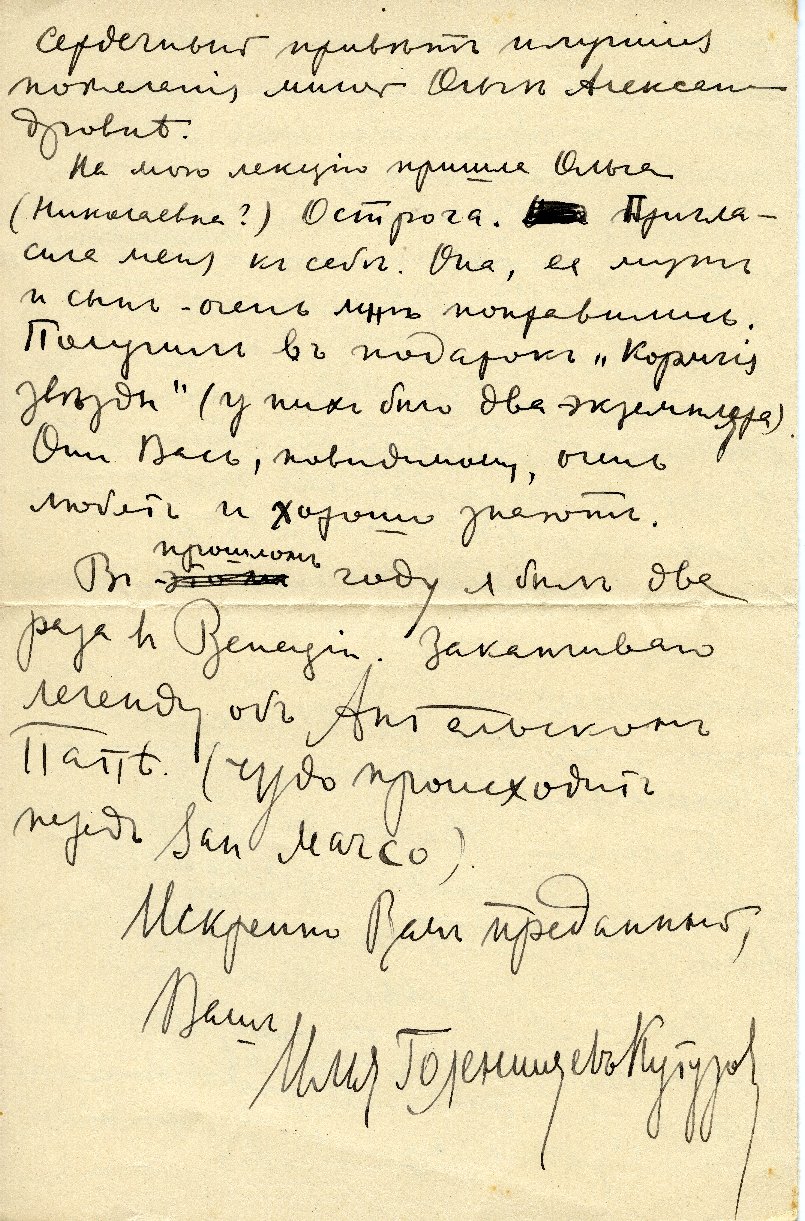 сердечный привѣтъ и лучшія
пожеланія милой Ольгѣ Алексан-
дровнѣ.
На мою лекцію пришла Ольга
(Николаевна?) Острога. Пригла-
сила меня къ себѣ. Она, ея мужъ
и сынъ - очень мнѣ понравились.
Получилъ въ подарокъ „Кормчія
звѣзды" (у нихъ было два экземпляра).
Они Васъ, повидимому, очень
любятъ и хорошо знаютъ.
Въ прошломъ году я былъ два
раза въ Венеціи. Заканчиваю
легенду объ Ангельскомъ
Папѣ. (чудо происходитъ
передъ San Marco).
Искренно Вамъ преданный,
Вашъ
Илья Голенищевъ Кутузов